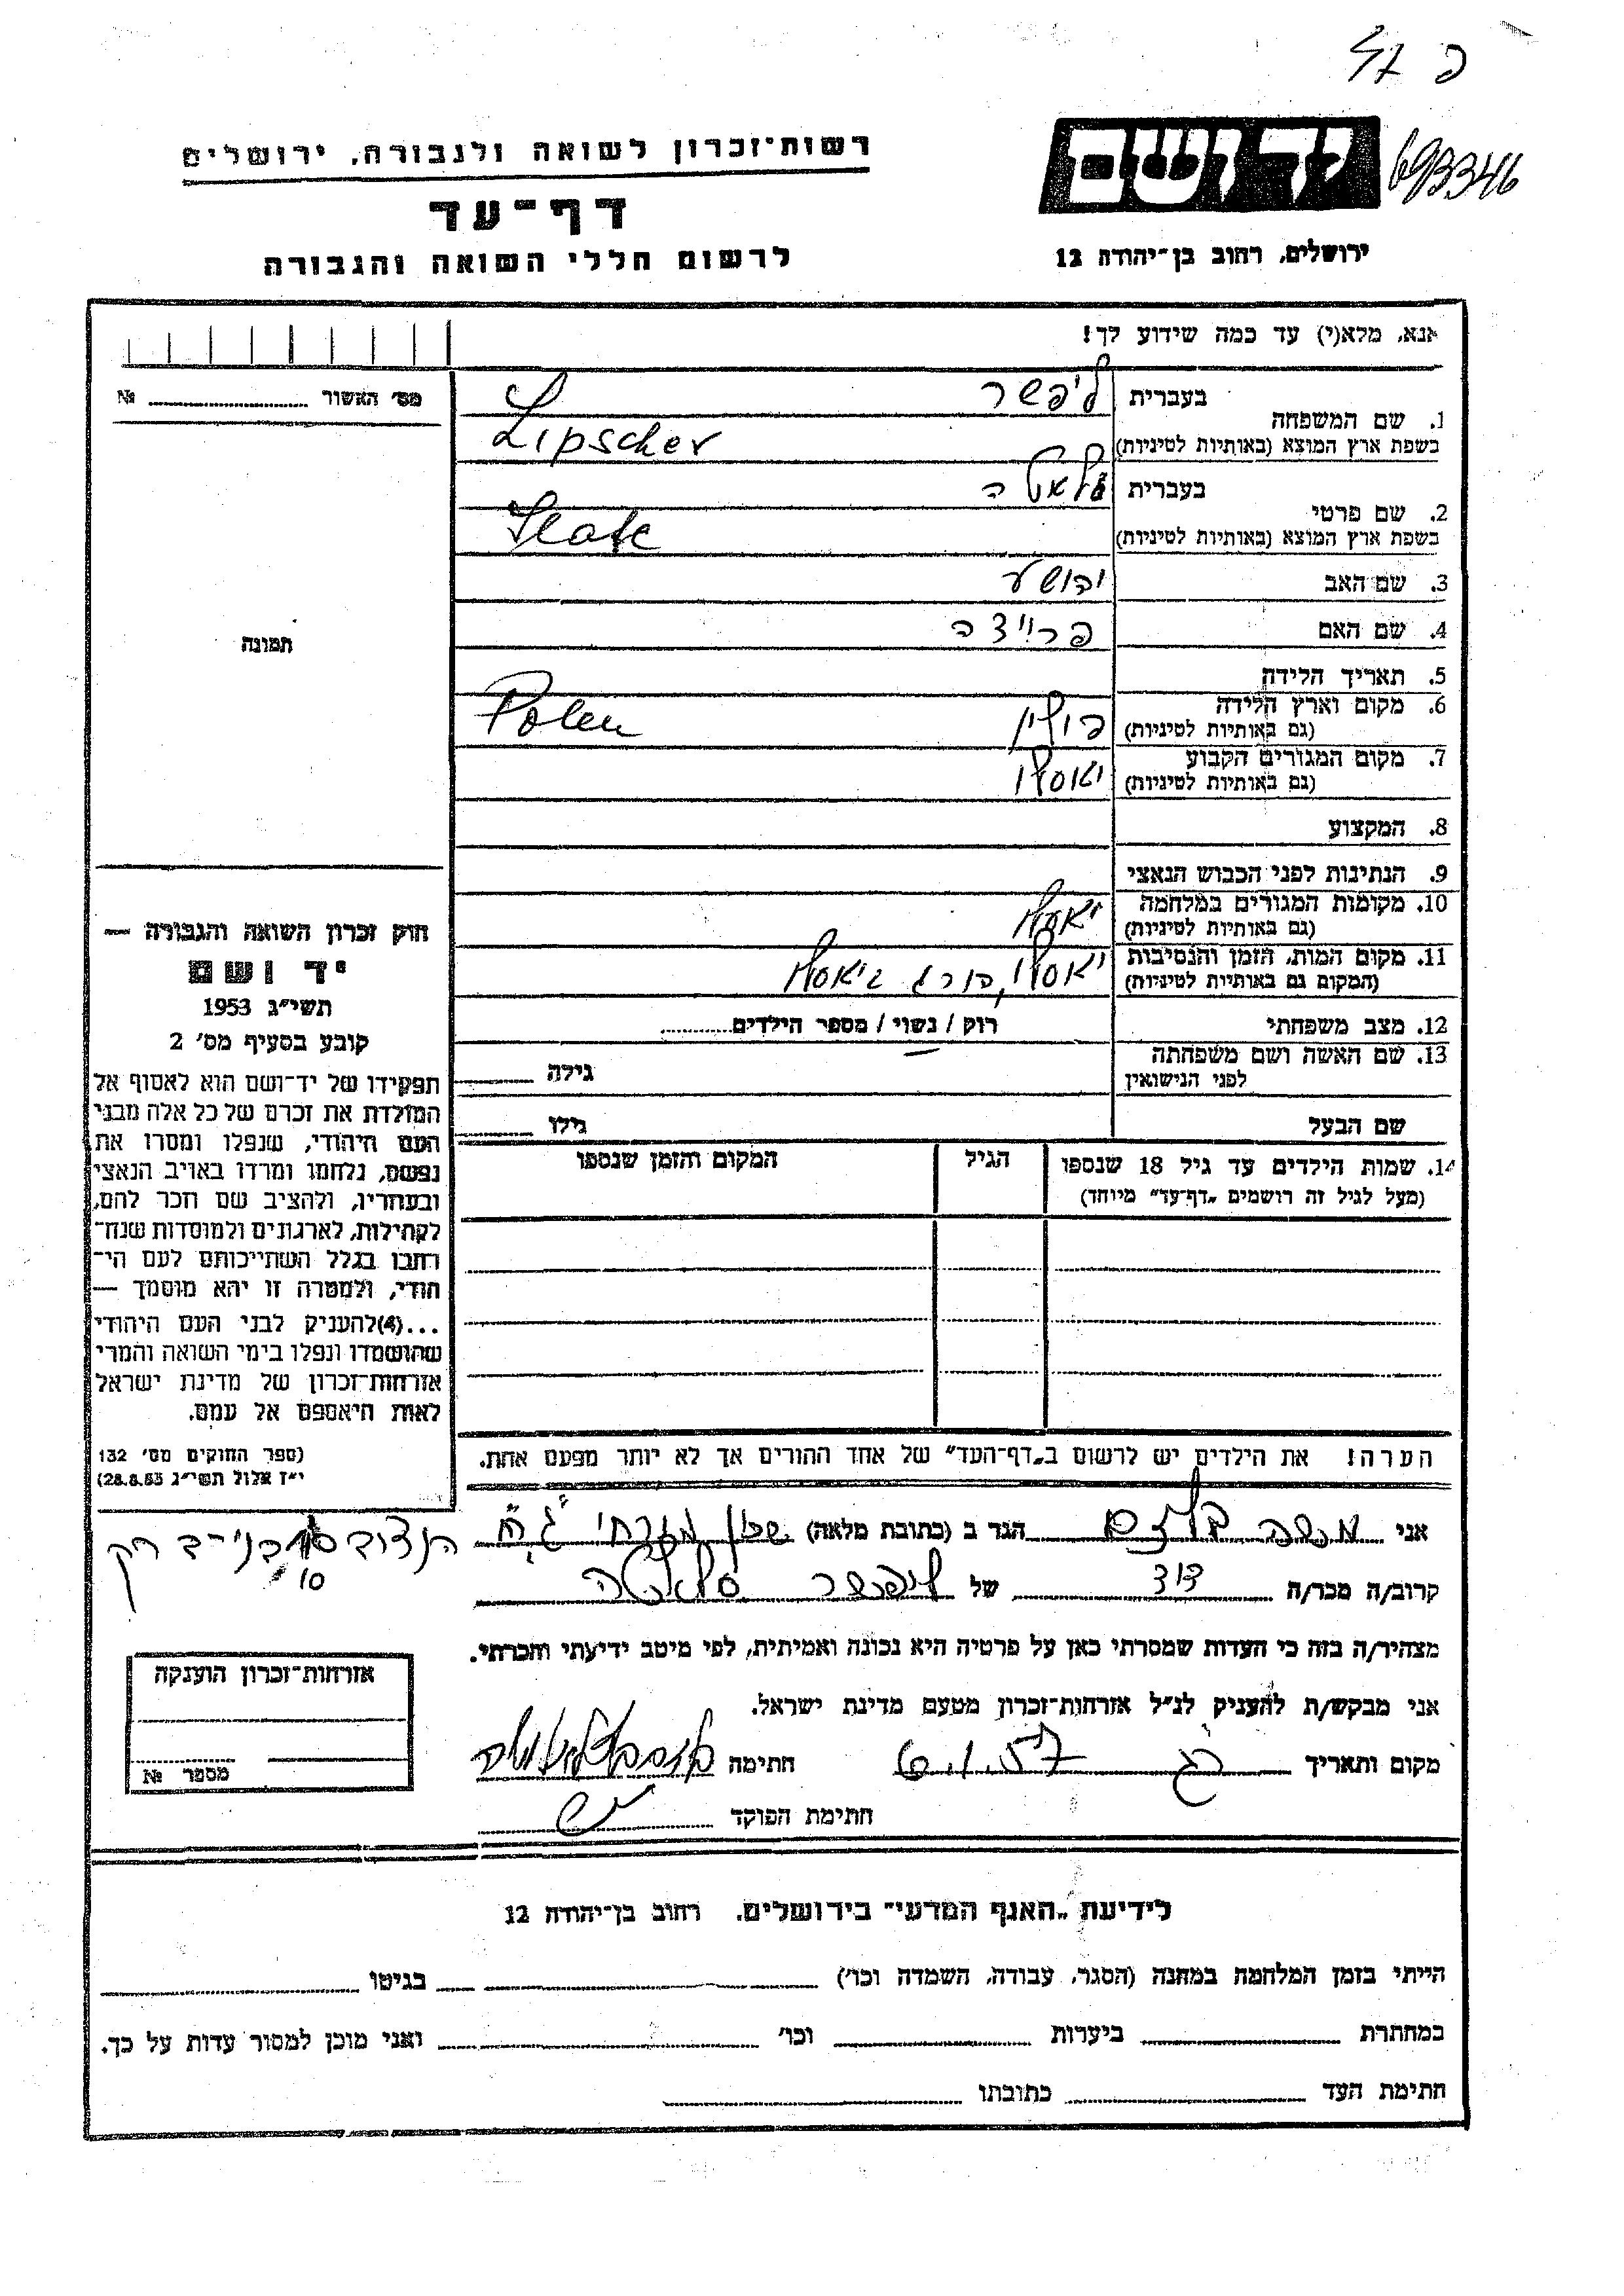 693346
יד ושם
ירושלים, רחוב בן־יהודה 12
רשות־זכרון לשואה ולגבורה, ירושלים
דף־עד
לרשום חללי השואה והגבורה
אנא, מלא(י) עד כמה שידוע לך!
1. שם המשפחה
בעברית ליפשר
בשפת ארץ המוצא (באותיות לטיניות) Lipscher
2. שם פרטי
בעברית
בשפת ארץ המוצא (באותיות לטיניות)
3. שם האב יהושע
4. שם האם
5. תאריך הלידה
6. מקום וארץ הלידה פולין Polen
(גם באותיות לטיניות)
7. מקום המגורים הקבוע יאסלו
(גם באותיות לטיניות)
8. המקצוע
9. הנתינות לפני הכבוש הנאצי
10. מקומות המגורים במלחמה יאסלו
(גם באותיות לטיניות)
11. מקום המות, הזמן והנסיבות יאסלו,
(המקום גם באותיות לטיניות)
12. מצב משפחתי רוק / נשוי / מספר הילדים
13. שם האשה ושם משפחתה גילה
לפני הנישואין
שם הבעל גילו
14. שמות הילדים עד גיל 18 שנספו הגיל המקום והזמן שנספו
(מעל לגיל זה רושמים „דף־עד" מיוחד)
הערה! את הילדים יש לרשום ב„דף־העד" של אחד ההורים אך לא יותר מפעם אחת.
מס׳ האשור №
תמונה
חוק זכרון השואה והגבורה —
יד ושם
תשי״ג 1953
קובע בסעיף מס׳ 2
תפקידו של יד־ושם הוא לאסוף אל
המולדת את זכרם של כל אלה מבני
העם היהודי, שנפלו ומסרו את
נפשם, נלחמו ומרדו באויב הנאצי
ובעוזריו, ולהציב שם וזכר להם,
לקהילות, לארגונים ולמוסדות שנח־
רבו בגלל השתייכותם לעם הי־
הודי, ולמטרה זו יהא מוסמך —
...(4)להעניק לבני העם היהודי
שהושמדו ונפלו בימי השואה והמרי
אזרחות־זכרון של מדינת ישראל
לאות היאספם אל עמם.
(ספר החוקים מס׳ 132
י״ז אלול תשי״ג 28.8.53)
אני משה הגר ב (כתובת מלאה) שכון מזרחי בני־ברק
קרוב/ה מכר/ה דוד של ליפשר
מצהיר/ה בזה כי העדות שמסרתי כאן על פרטיה היא נכונה ואמיתית, לפי מיטב ידיעתי והכרתי.
אני מבקש/ת להעניק לנ״ל אזרחות־זכרון מטעם מדינת ישראל.
מקום ותאריך 6.1.57 חתימה
חתימת הפוקד
אזרחות־זכרון הוענקה
מספר №
לידיעת „האגף המדעי" בירושלים, רחוב בן־יהודה 12
הייתי בזמן המלחמה במחנה (הסגר, עבודה, השמדה וכו׳) בגיטו
במחתרת ביערות וכו׳ ואני מוכן למסור עדות על כך.
חתימת העד כתובתו